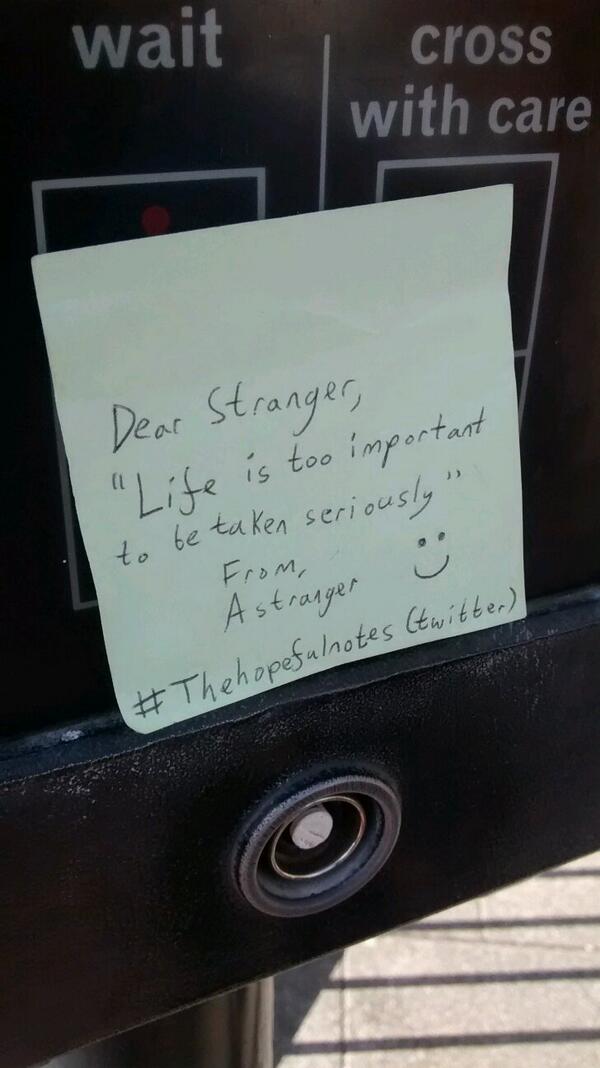 wait
cross
with care
Dear Stranger,
"Life is too important
to be taken seriously"
From,
A stranger
#Thehopefulnotes (twitter)